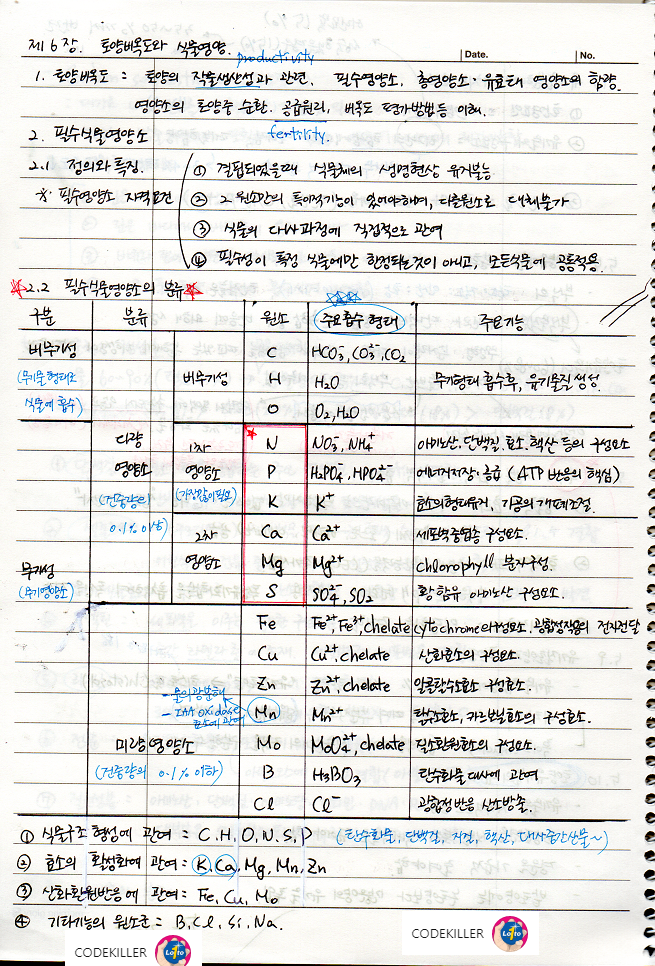 제 6 장. 토양비옥도와 식물영양.
productivity
Date.
No.
1. 토양비옥도 : 토양의 작물생산성과 관련. 필수영양소. 총영양소·유효태 영양소의 함량.
영양소의 토양중 순환. 공급원리, 비옥도 평가방법등 이해.
2. 필수식물영양소
fertility.
2.1 정의와 특징.
① 결핍되었을때 식물체의 생명현상 유지불능
※ 필수영양소 자격요건
② 그 원소만의 특이적기능이 있어야하며, 다른원소로 대체불가
③ 식물의 대사과정에 직접적으로 관여
④ 필수성이 특정 식물에만 한정되는것이 아니고, 모든식물에 공통적용.
2.2 필수식물영양소의 분류
구분 분류 원소 주요흡수형태 주요기능
비무기성 C HCO₃⁻, CO₃²⁻, CO₂
(무기물형태로 비무기성 H H₂O 무기형태 흡수후, 유기물질 생성.
식물에 흡수) O O₂, H₂O
다량 1차 N NO₃⁻, NH₄⁺ 아미노산. 단백질. 효소. 핵산 등의 구성요소
영양소 영양소 P H₂PO₄⁻, HPO₄²⁻ 에너지저장. 공급 (ATP 반응의 핵심)
(건중량의 (가장많이필요) K K⁺ 효소의형태유지, 기공의 개폐조절.
0.1% 이상) 2차 Ca Ca²⁺ 세포벽중엽층 구성요소.
영양소 Mg Mg²⁺ chlorophyll 분자구성.
무기성
(무기영양소) S SO₄²⁻, SO₂ 황 함유 아미노산 구성요소.
Fe Fe²⁺, Fe³⁺, chelate cytochrome의구성요소. 광합성작용의 전자전달
Cu Cu²⁺, chelate 산화효소의 구성요소.
Zn Zn²⁺, chelate 알콜탈수소효소 구성효소.
- 물의 광분해
- IAA oxidase 효소에 관여
Mn Mn²⁺ 탈수소효소, 카르보닐효소의 구성효소.
미량영양소 Mo MoO₄²⁻, chelate 질소환원효소의 구성요소.
(건중량의 0.1% 이하) B H₃BO₃ 탄수화물 대사에 관여
Cl Cl⁻ 광합성반응 산소방출.
① 식물구조 형성에 관여 : C, H, O, N, S, P (탄수화물, 단백질, 지질, 핵산, 대사중간산물~)
② 효소의 활성화에 관여 : K, Ca, Mg, Mn, Zn
③ 산화환원반응에 관여 : Fe, Cu, Mo
④ 기타기능의 원소군 : B, Cl, Si, Na.
CODEKILLER Lotto
CODEKILLER Lotto